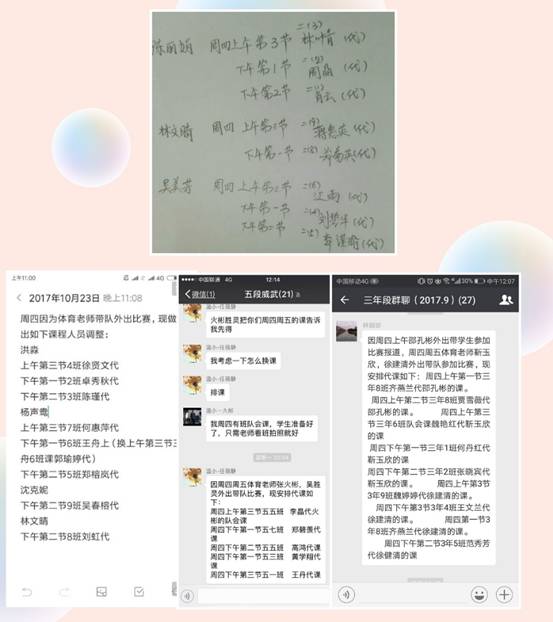 陈丽娟 周四上午第3节 二(3) 林叶青(代)
下午第1节 周晶(代)
下午第2节 肖云(代)
林文晴 周四 上午第二节 (代)
下午第一节 二(8) (代)
周四上午第二节 江南(代)
下午第一节 (代)
下午第二节 (代)
上午11:00
4G
2017年10月23日 晚上11:08
周四因为体育老师带队外出比赛，现做
出如下课程人员调整：
洪淼
上午第三节4班徐贤文代
下午第一节2班卓秀秋代
下午第二节3班陈瑾代
杨声
上午第三节7班何惠萍代
下午第一节6班王舟上（换上午第三节3
舟6班课郭瑜婷代）
下午第二节5班郑榕岚代
沈克妮
下午第二节9班吴春榕代
林文晴
下午第二节8班刘虹代
中国移动 4G 12:14
微信(1) 五段威武(21)
火彬胜灵把你们周四周五的课告诉
我先得
我考虑一下怎么换课
排课
温小-火彬
我周四有班队会课，学生准备好
了，只需老师看班拍照就好
因周四周五体育老师张火彬，吴胜
灵外出带队比赛，现安排代课如
下：
周四上午第三节五五班 李晶代火
彬的队会课
周四下午第一节五七班 郑碧羡代
课
周四下午第二节五五班 高鸿代课
周四下午第一节五三班 黄学翔代
课
周四下午第三节五一班 王丹代课
中国移动4G 30% 中午12:07
三年段群聊（2017.9）(27)
因周四上午邵孔彬外出带学生参加
比赛报道，周四周五体育老师靳玉
欣，徐建清外出带队参加比赛，现
安排代课如下：周四上午第一节三
年8班齐燕兰代邵孔彬的课。
周四上午第二节三年8班贾雪薇代
邵孔彬的课。 周四上午第三
节三年6班队会课魏艳红代靳玉欣
的课
周四下午第一节三年1班何丹红代
靳玉欣的课
周四下午第二节三年2班张晓宾代
靳玉欣的课。 周四上午第3节
3年9班魏婷婷代徐建清的课。
周四下午第3节3年4班王文兰代
徐建清的课。 周四第一节3
年8班齐燕兰代徐建清的课。
周四下午第二节3年5班范秀芳
代徐健清的课